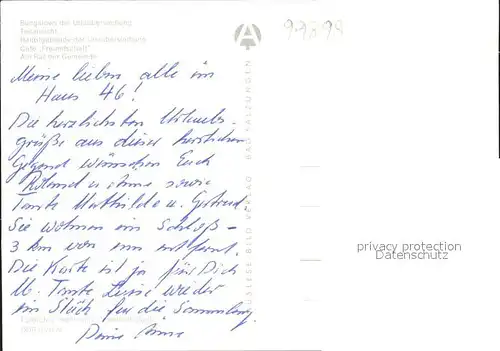 Bungalows der Urlaubersiedlung
Teilansicht
Café "Freundschaft"
Am Rat der Gemeinde
99898
Meine lieben alle im
Haus 46!
Die herzlichsten Urlaubs-
grüße aus dieser herrlichen
Gegend wünschen Euch
Roland u. ihme sowie
Tante Mathilde u. Gertrud.
Sie wohnen im Schloß –
3 km von uns entfernt.
Die Karte ist ja für Dich
u. Tante Luise wieder
ein Stück für die Sammlung.
Deine
AUSLESE-BILD-VERLAG BAD SALZUNGEN
privacy protection
Datenschutz